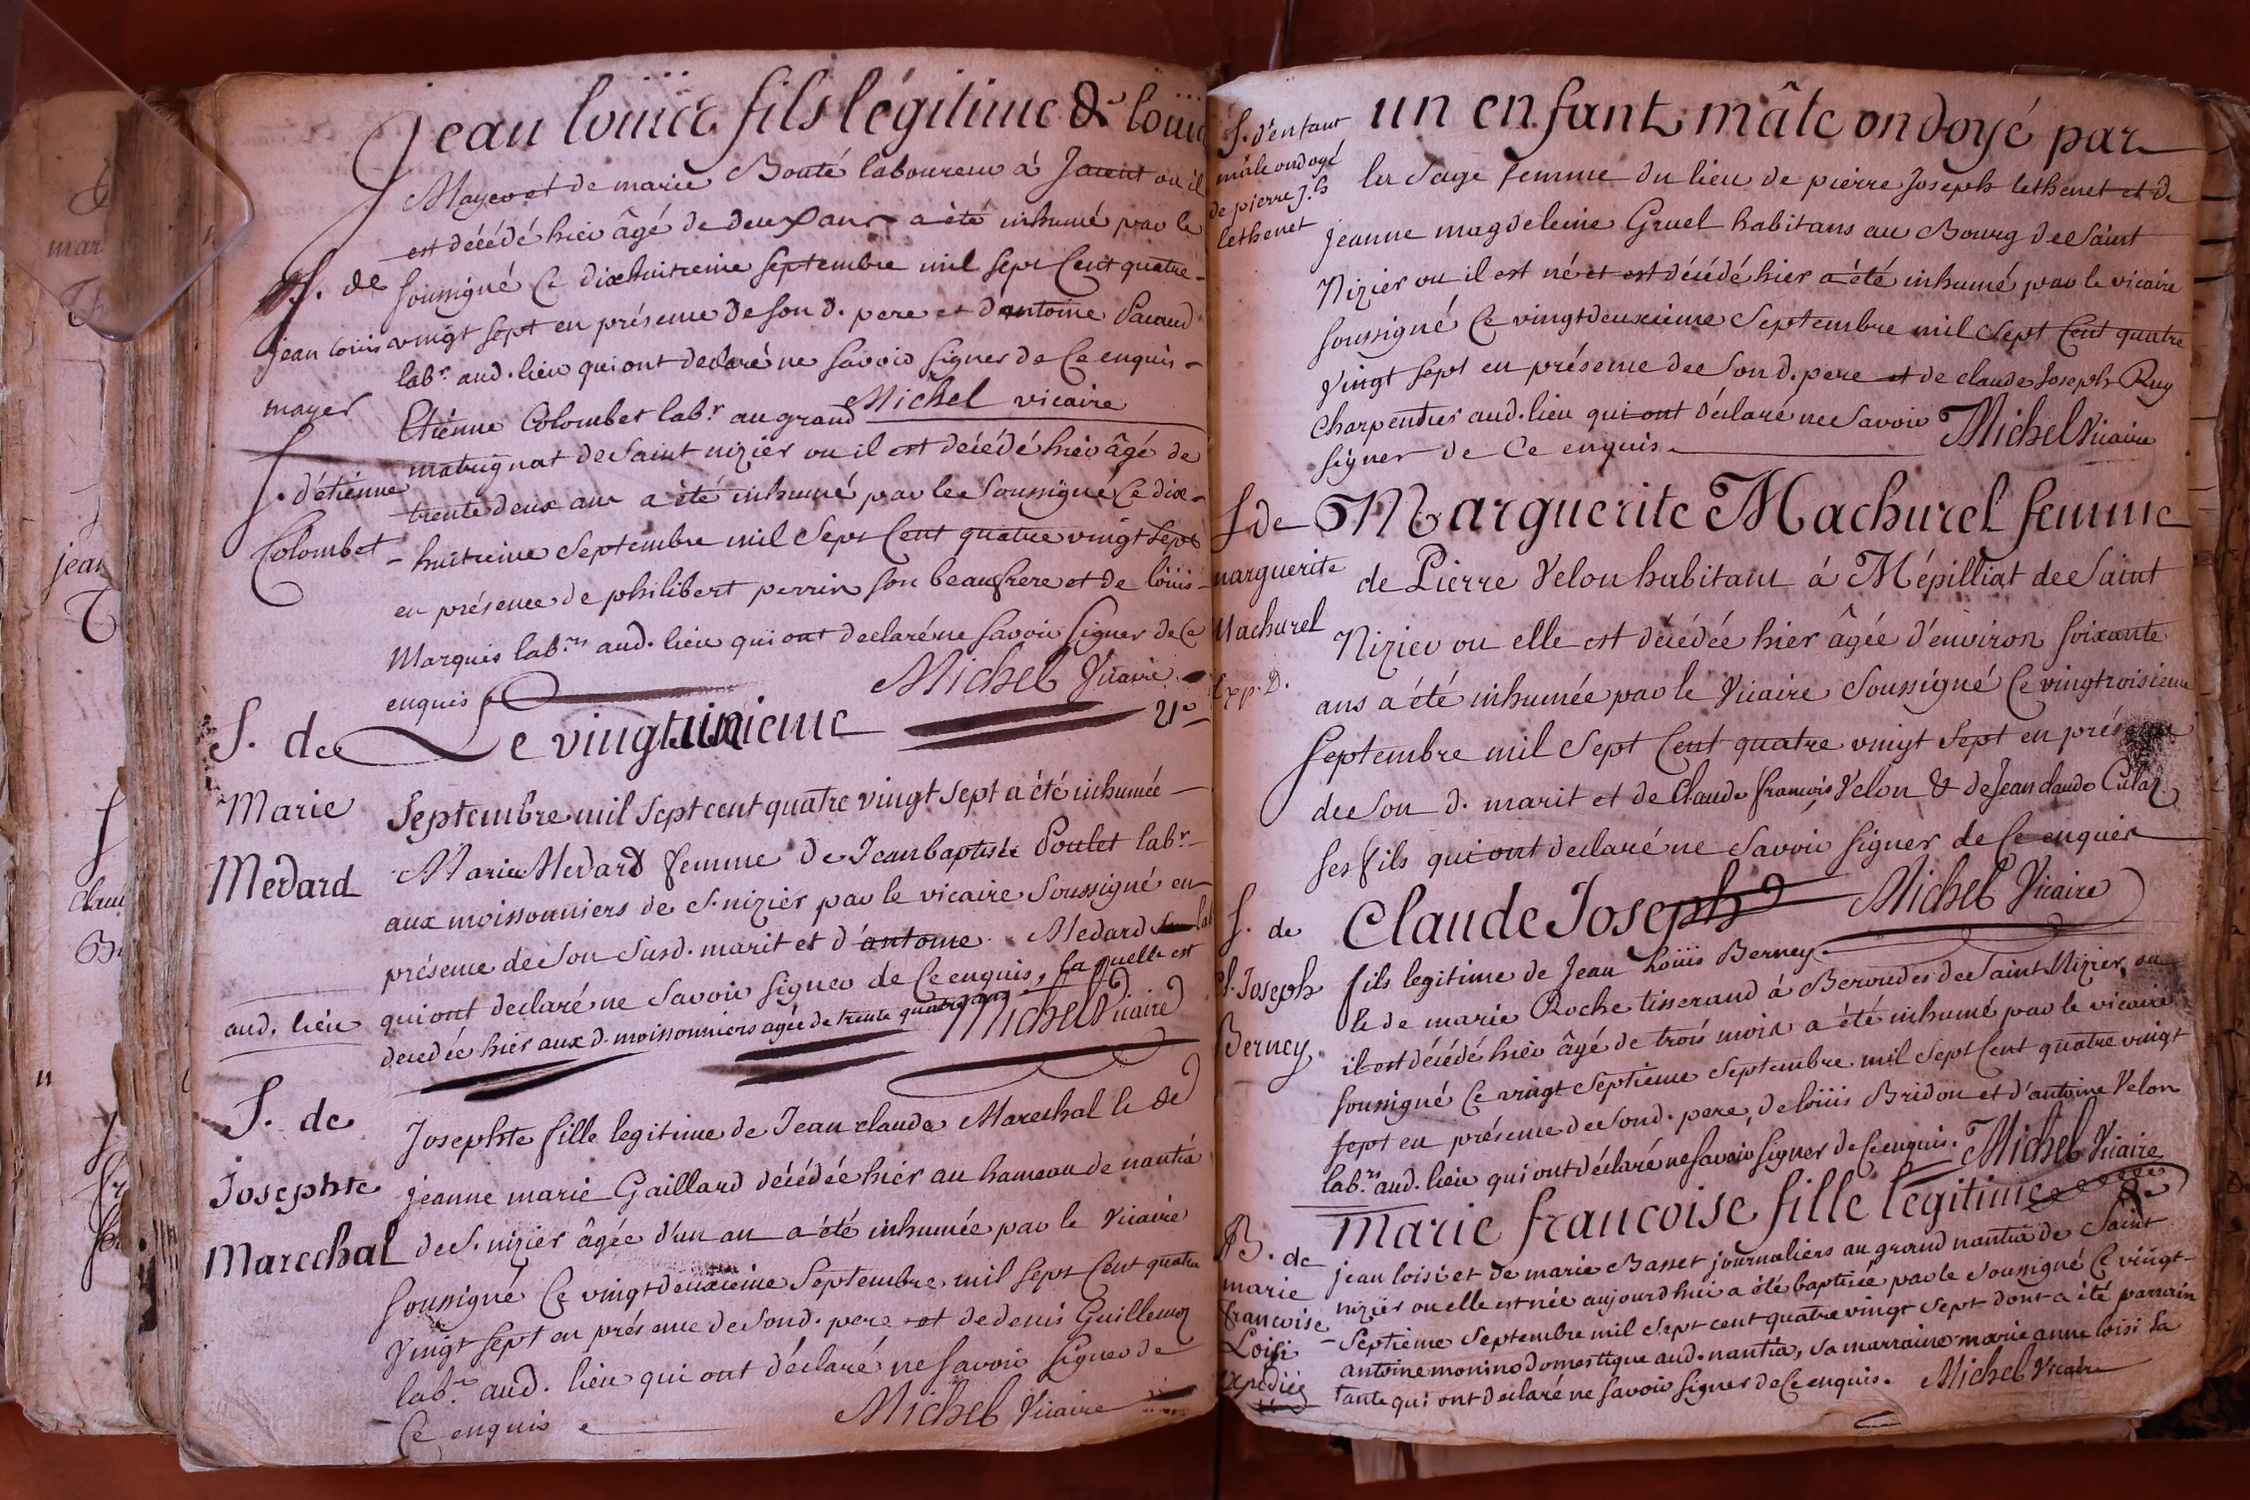 Jean loüis fils légitime de loüis
Mayer et de marie Bouté laboureur à Javent ou il
est décédé hier âgé de deux ans a été inhumé par le
S. de
soussigné Ce dixhuitieme septembre mil sept Cent quatre-
jean louis
vingt sept en présence de son d. pere et d'antoine Pacaud
labr. aud. lieu qui ont declaré ne savoir signer de Ce enquis -
mayer
Michel vicaire
Etiénne Colombet labr au grand
S. d'étienne
matrignat de Saint nizier ou il est décédé hier âgé de
trente deux ans a été inhumé par le Soussigné Ce dix-
Colombet
- huitieme Septembre mil Sept Cent quatre vingt Sept
en présence de philibert perrin son beaufrere et de loüis
Marquis labrs aud. lieu qui ont declaré ne savoir signer de Ce
enquis
Michel Vicaire
S. de
Le vingt unieme
21e
Marie
Septembre mil sept cent quatre vingt sept a été inhumée
Medard
Marie Medard femme de Jean baptiste Poulet labr
aux moissonniers de S. nizier par le vicaire Soussigné en
présence de Son Susd. marit et d'antoine Medard lab
aud. lieu
qui ont declaré ne Savoir signer de Ce enquis, laquelle est
decedée hier aux d. moissonniers agée de trente quatre ans
Michel Vicaire
S. de
Josephte fille legitime de Jean claude Mareshal & de
Josephte
jeanne marie Gaillard décédée hier au hameau de nantia
Marechal
de S. nizier âgée d'un an a été inhumée par le Vicaire
soussigné Ce vingt deuxieme Septembre mil sept Cent quatre
Vingt sept en présence de Son d. pere et de denis Guillemoz
labr. aud. lieu qui ont déclaré ne savoir signer de
Ce enquis
Michel Vicaire
S. d'enfant
mâle ondoyé
de pierre Jh
lethenet
un enfant mâle ondoyé par
la Sage femme du lieu de pierre Joseph lethenet et de
jeanne magdeleine Gruel habitans au Bourg de Saint
Nizier ou il est né et est décédé hier a été inhumé par le vicaire
soussigné Ce vingtdeuxieme Septembre mil Sept Cent quatre
vingt sept en présence de Son d. pere et de claude Joseph Ruy
Charpentier aud. lieu qui ont déclaré ne Savoir
signer de Ce enquis.
Michel Vicaire
S. de
Marguerite Machurel femme
marguerite
de Pierre Velon habitant à Mépilliat de Saint
Machurel
Nizier ou elle est décédée hier âgée d'environ soixante
Exp. D.
ans a été inhumée par le Vicaire Soussigné Ce vingtroisieme
Septembre mil Sept Cent quatre vingt Sept en présence
de Son d. marit et de Claude françois Velon & de Jean claude
ses fils qui ont declaré ne Savoir signer de Ce enquis
Michel Vicaire
S. de
Claude Joseph
Cl. Joseph
fils legitime de Jean Loüis Berney
Berney
& de marie Roche tisserand à Beroudes de Saint Nizier ou
il est décédé hier âgé de trois mois a été inhumé par le vicaire
soussigné Ce vingt Septieme septembre mil Sept Cent quatre vingt
sept en présence de Son d. pere, de loüis Bridon et d'antoine Velon
labrs aud. lieu qui ont déclaré ne savoir signer de Ce enquis.
Michel Vicaire
B. de
marie
francoise
Loisi
expediée
Marie francoise fille légitime de
jean loisi et de marie Basset journaliers au grand nantia de Saint
nizier ou elle est née aujourdhui a été baptisée par le Soussigné Ce vingt-
- Septieme Septembre mil Sept cent quatre vingt Sept dont a été parrain
antoine monin domestique aud. nantia, sa marraine marie anne loisi sa
tante qui ont declaré ne savoir signer de Ce enquis. Michel Vicaire